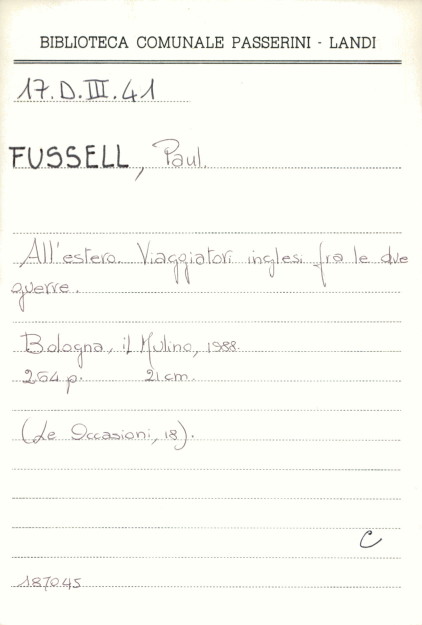 BIBLIOTECA COMUNALE PASSERINI - LANDI
17.D.III.41
FUSSELL, Paul.
All'estero. Viaggiatori inglesi fra le due
guerre.
Bologna, il Mulino, 1988.
264 p. 21 cm.
(Le Occasioni, 18).
C
187045